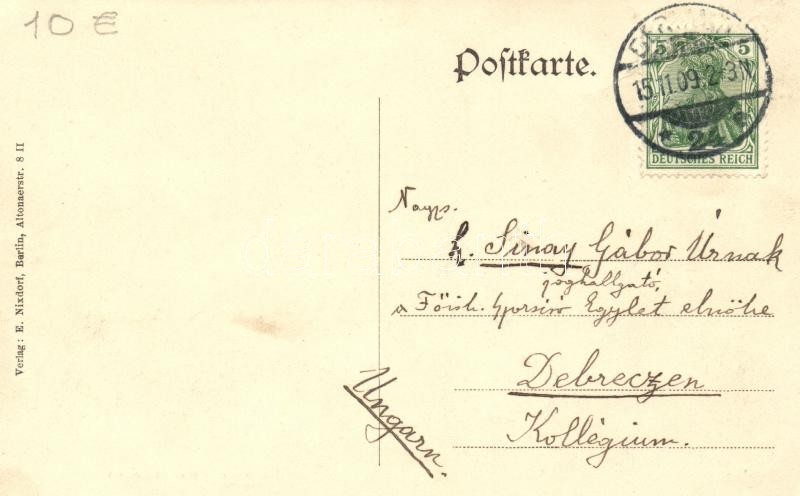 10 €
Postkarte.
5 5
15.11.09. 2-3N
* 24
DEUTSCHES REICH
Verlag: E. Nixdorf, Berlin, Altonaerstr. 8 II
Nagys.
Sinay Gábor Úrnak
joghallgató,
a Főisk. Gyorsíró Egylet elnöke
Debreczen
Kollégium.
Ungarn.